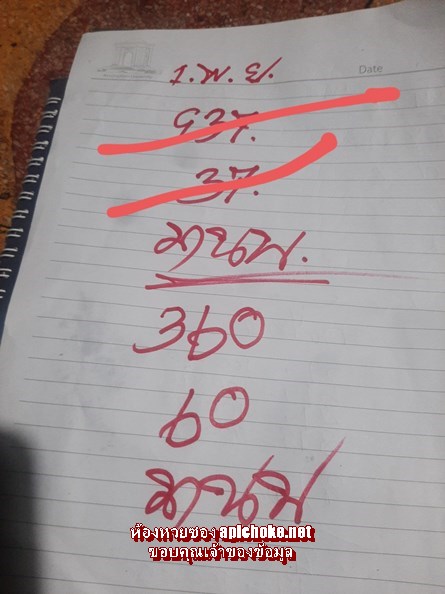 Date
1.พ.ย.
937.
37.
มานพ.
360
60
มานพ
ห้องหวยซอง apichoke.net
ขอบคุณเจ้าของข้อมูล